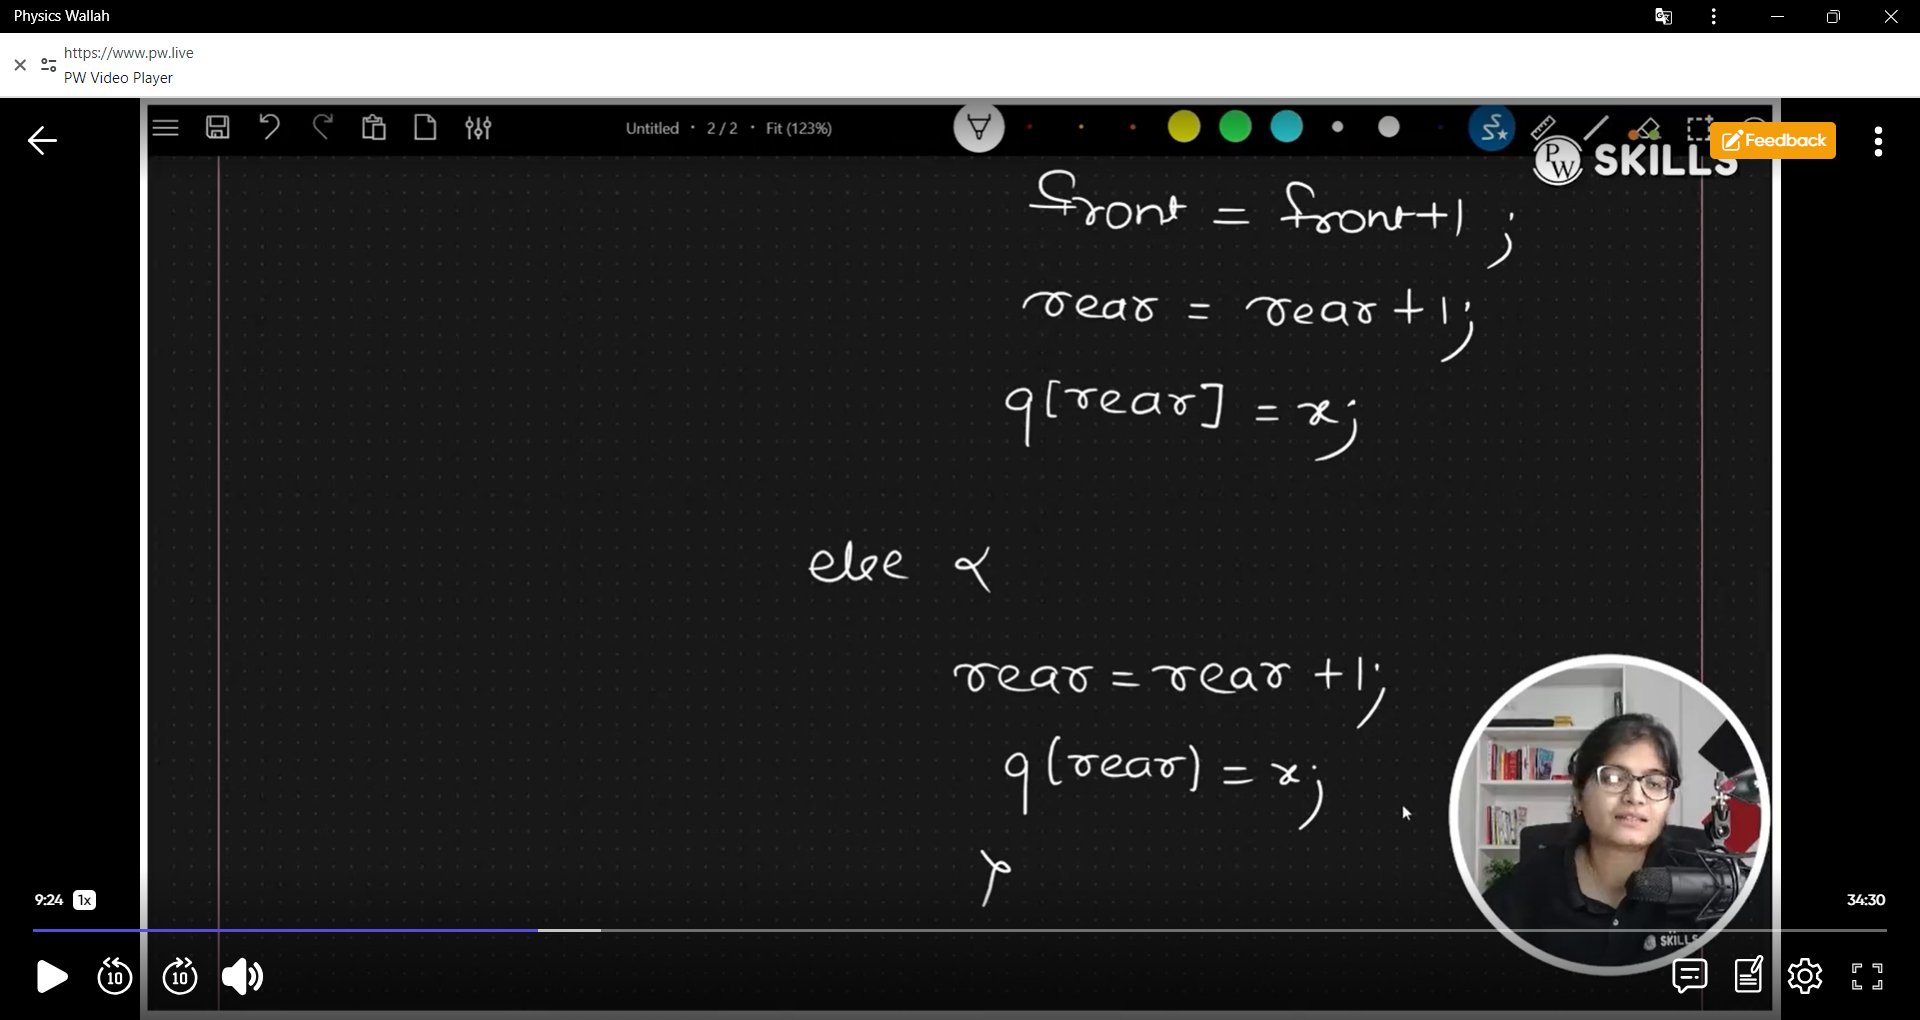 Physics Wallah
https://www.pw.live
PW Video Player
Untitled · 2/2 · Fit (123%)
Feedback
PW SKILLS
front = front+1 ;
rear = rear+1;
q[rear] = x;
else {
rear = rear +1;
q(rear) = x;
}
9:24 1x
34:30
SKILLS
10 10